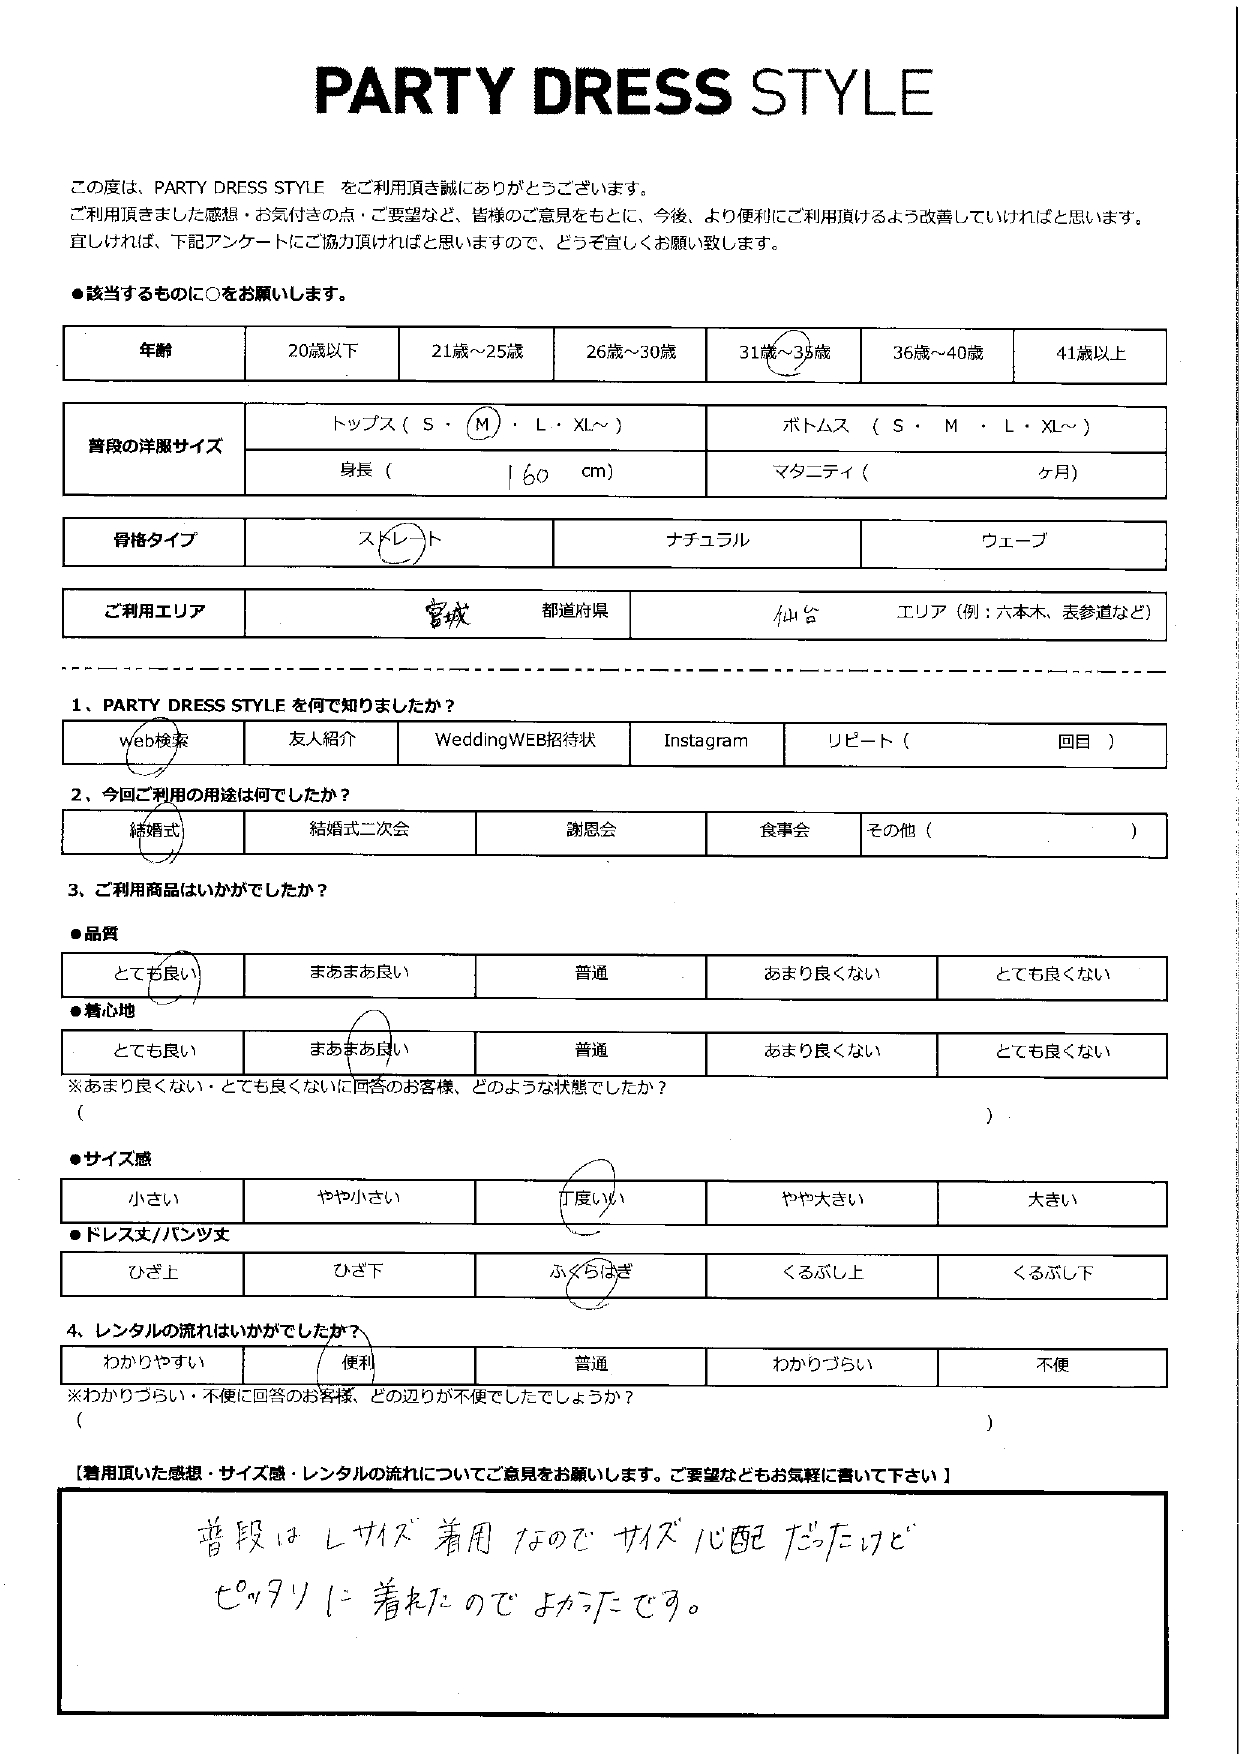 PARTY DRESS STYLE
この度は、PARTY DRESS STYLE をご利用頂き誠にありがとうございます。
ご利用頂きました感想・お気付きの点・ご要望など、皆様のご意見をもとに、今後、より便利にご利用頂けるよう改善していければと思います。
宜しければ、下記アンケートにご協力頂ければと思いますので、どうぞ宜しくお願い致します。
●該当するものに○をお願いします。
年齢 20歳以下 21歳～25歳 26歳～30歳 31歳～35歳 36歳～40歳 41歳以上
普段の洋服サイズ
トップス ( S ・ M ・ L ・ XL～ ) ボトムス ( S ・ M ・ L ・ XL～ )
身長 ( 160 cm) マタニティ ( ヶ月)
骨格タイプ ストレート ナチュラル ウェーブ
ご利用エリア 宮城 都道府県 仙台 エリア (例：六本木、表参道など)
1、PARTY DRESS STYLE を何で知りましたか？
web検索 友人紹介 WeddingWEB招待状 Instagram リピート ( 回目 )
2、今回ご利用の用途は何でしたか？
結婚式 結婚式二次会 謝恩会 食事会 その他 ( )
3、ご利用商品はいかがでしたか？
●品質
とても良い まあまあ良い 普通 あまり良くない とても良くない
●着心地
とても良い まあまあ良い 普通 あまり良くない とても良くない
※あまり良くない・とても良くないに回答のお客様、どのような状態でしたか？
( )
●サイズ感
小さい やや小さい 丁度いい やや大きい 大きい
●ドレス丈/パンツ丈
ひざ上 ひざ下 ふくらはぎ くるぶし上 くるぶし下
4、レンタルの流れはいかがでしたか？
わかりやすい 便利 普通 わかりづらい 不便
※わかりづらい・不便に回答のお客様、どの辺りが不便でしたでしょうか？
( )
【着用頂いた感想・サイズ感・レンタルの流れについてご意見をお願いします。ご要望などもお気軽に書いて下さい 】
普段は Lサイズ 着用 なので サイズ 心配 だったけど
ピッタリ に 着れた ので よかったです。